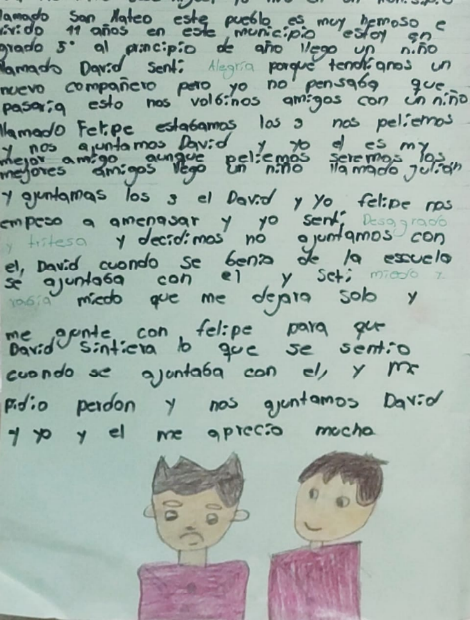 llamado San Mateo este pueblo es muy hemoso e
vivido 11 años en este municipio estoy en
grado 5° al principio de año llego un niño
llamado David senti Alegria porque tendriamos un
nuevo compañero pero yo no pensaba que
pasaria esto nos volbinos amigos con un niño
llamado Felipe estabamos los 3 nos peliemos
y nos ajuntamos David y yo el es my
mejor amigo aunque peliemos seremos los
mejores amigos llego un niño llamado julian
y ajuntamas los 3 el David y yo felipe nos
empeso a amenasar y yo senti Desagrado
y tritesa y decidimos no ajuntamos con
el, David cuando se benia de la escuela
se ajuntaba con el y seti miedo
rabia miedo que me dejara solo y
me ajunte con felipe para que
David Sintiera lo que se sentio
cuando se ajuntaba con el, y me
pidio perdon y nos ajuntamos David
y yo y el me aprecio mucho